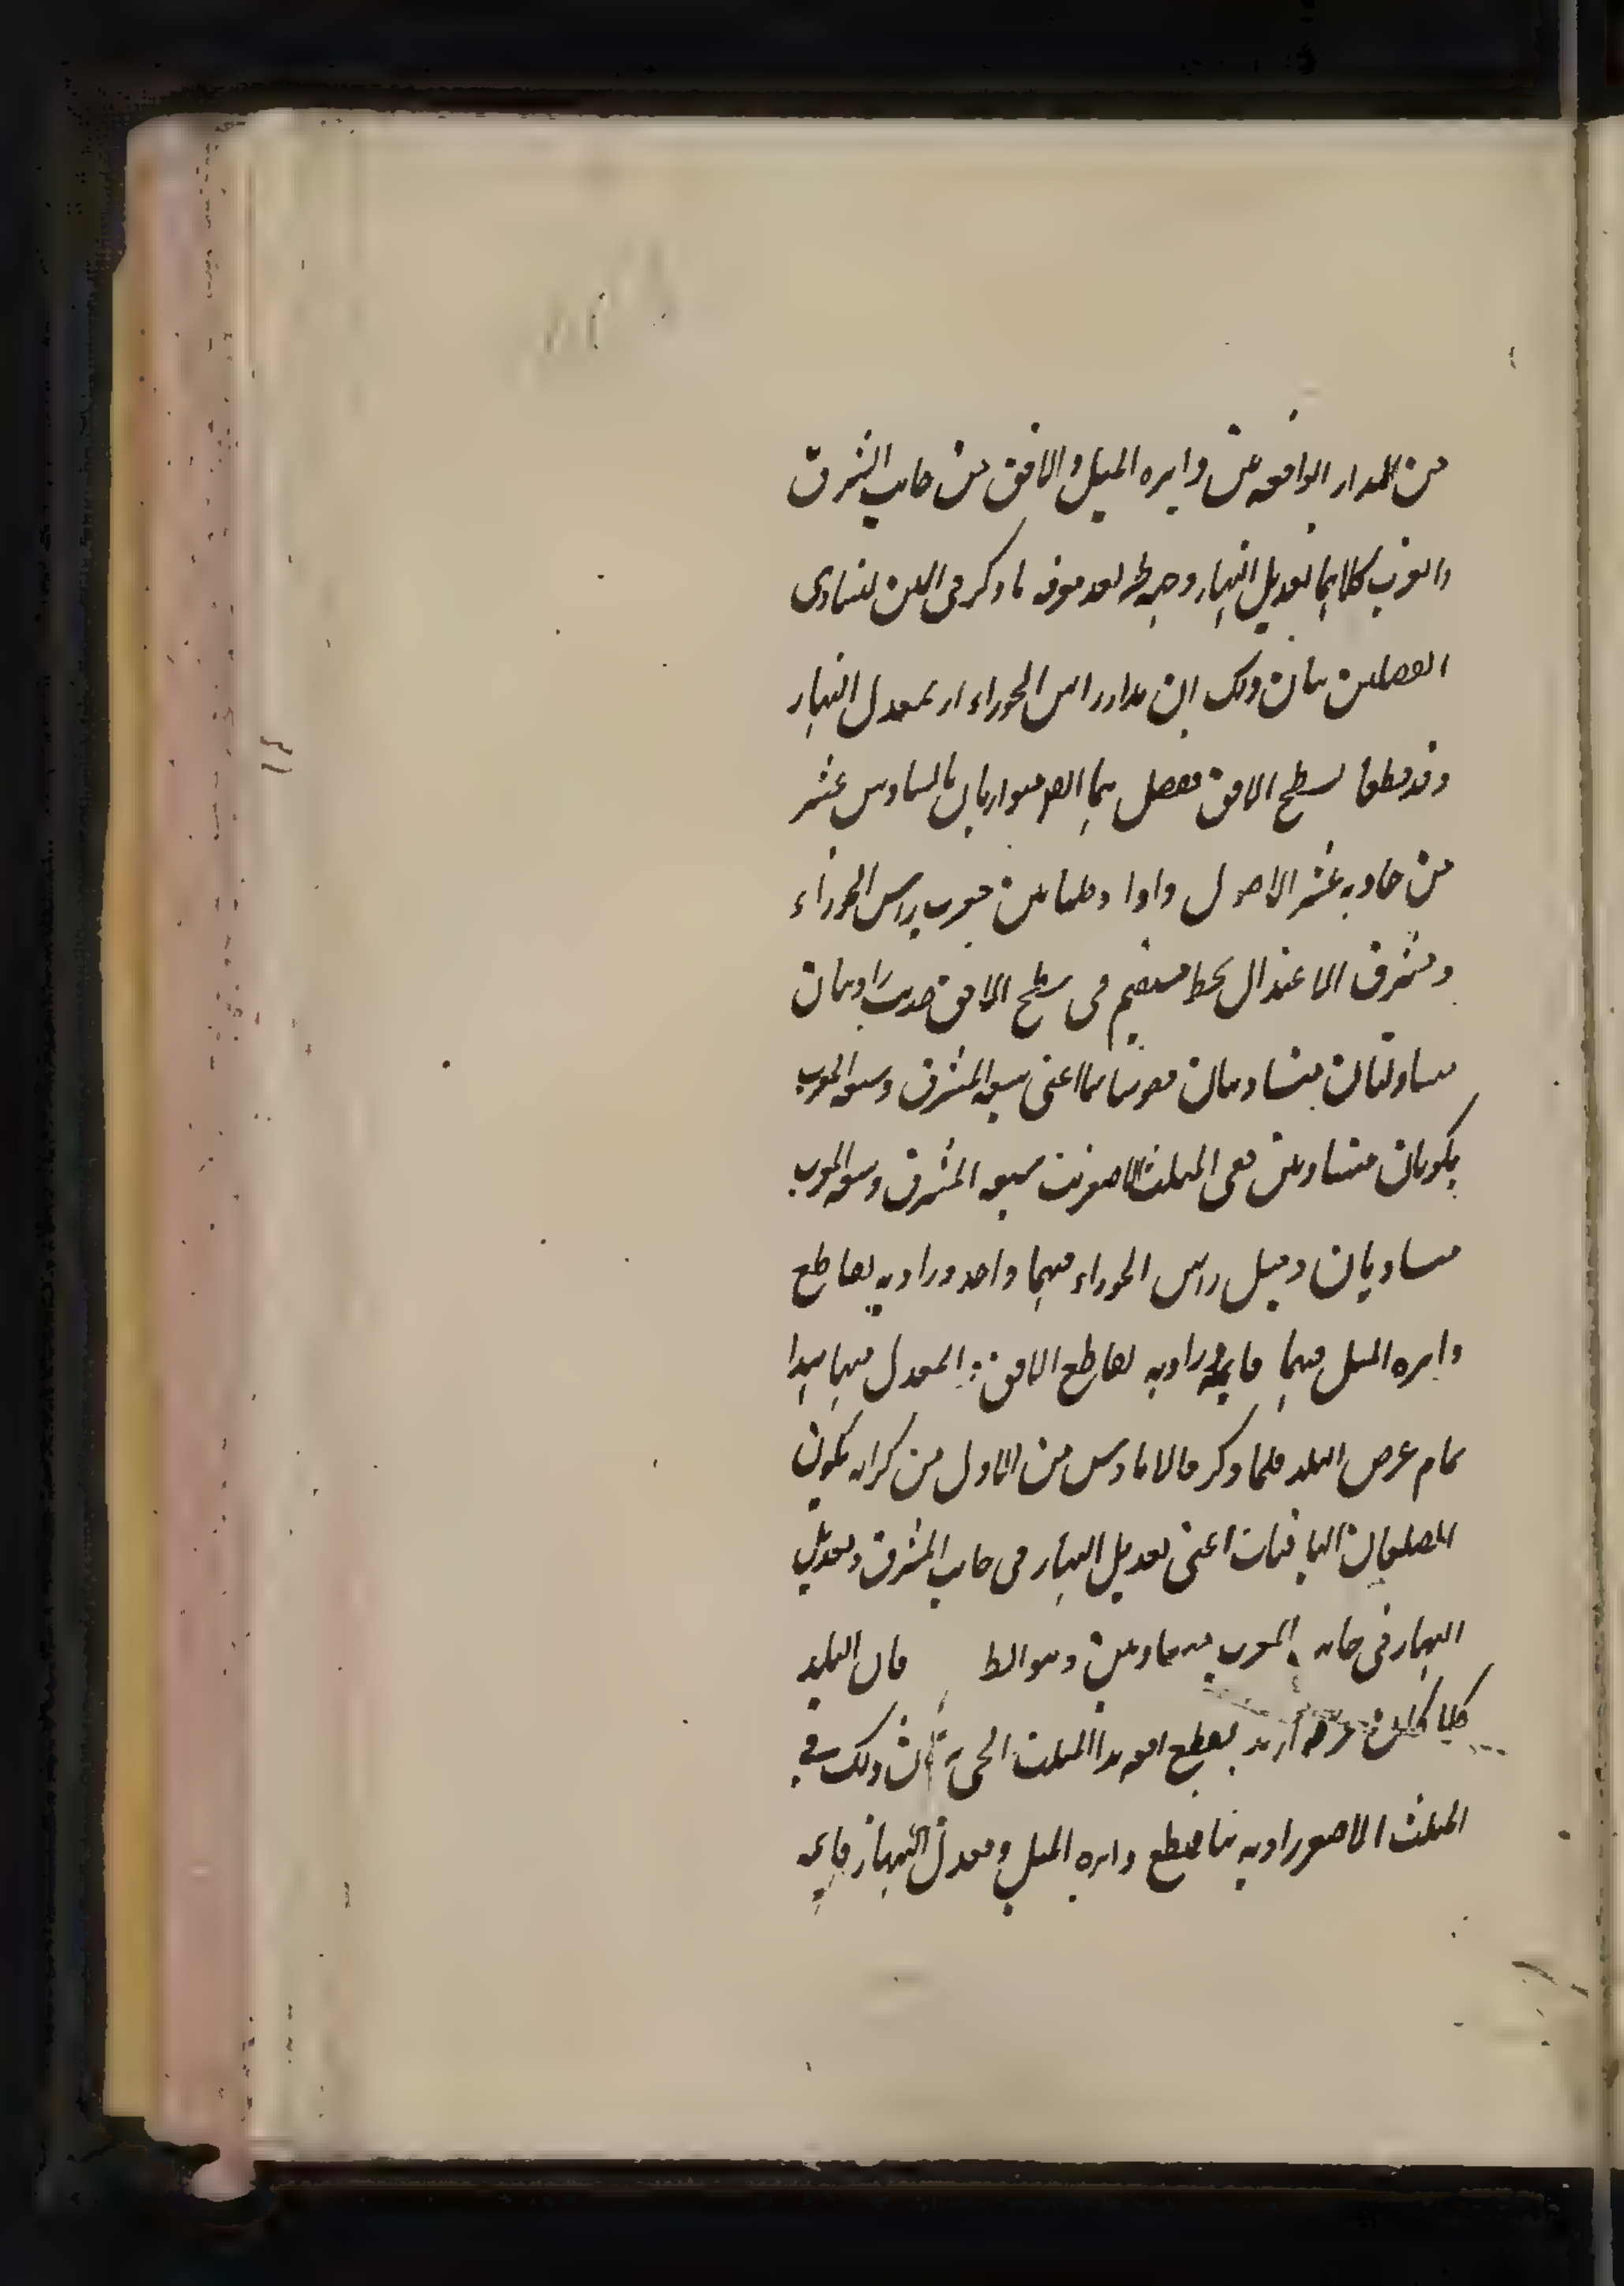 من المدار الواقعه بين دايره الميل والافق من جانب الشرق
والغرب كلاهما تعديل النهار وجه بعد معرفه ما ذكر في لتساوى
الفصلين بيان ذلك ان مدار راس الجوزاء معدل النهار
وقد قطعا لسطح الافق ففصل متوازيان بالسادس عشر
من حاديه عشر الاصول واذا وصلنا بين مغرب راس الجوزاء
ومشرق الاعتدال بخط مستقيم في سطح الافق حدث زاويتان
متبادلتان متساويتان فقوساهما اعنى سعه المشرق وسعه المغرب
يكونان متساويتين ففى المثلث الاصغر سعه المشرق وسعه المغرب
متساويان وميل راس الجوزاء فيهما واحد وزاويه تقاطع
دايره الميل فيهما قايمه وزاويه تقاطع الافق المعدل فيهما
تمام عرض البلد فلما ذكر مالاناوس من الاول من كراته يكون
الضلعان الباقيان اعنى تعديل النهار فى جانب المشرق وتعديل
النهار فى جانب المغرب متساويين وهو المط فان البلد
كلما كان عرضه ازيد المثلث ذلك في
المثلث الاصغر زاويه تقاطع دايره الميل ومعدل النهار قايمه